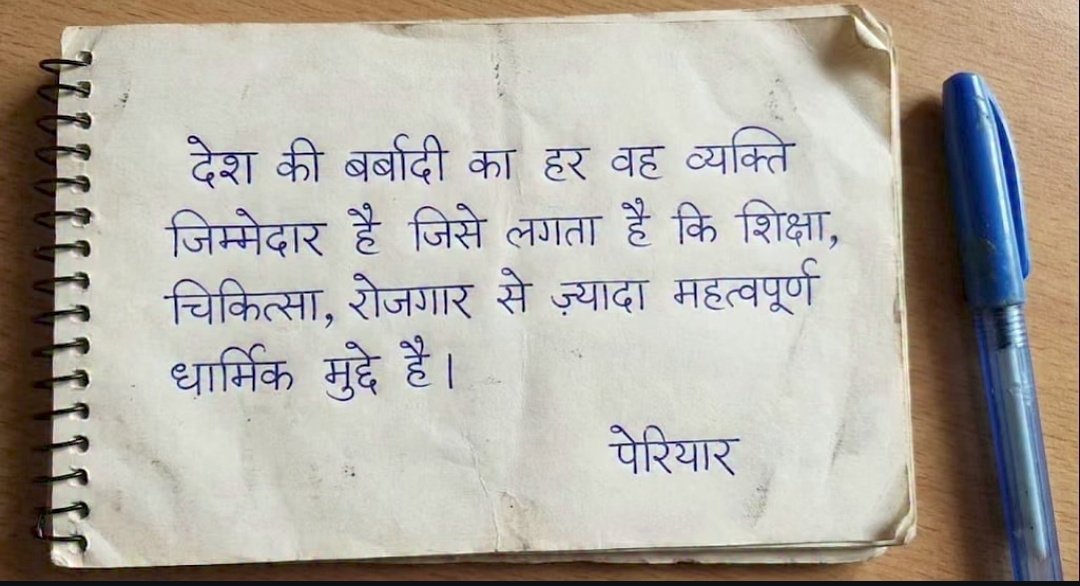 देश की बर्बादी का हर वह व्यक्ति
जिम्मेदार है जिसे लगता है कि शिक्षा,
चिकित्सा, रोजगार से ज़्यादा महत्वपूर्ण
धार्मिक मुद्दे है।
पेरियार